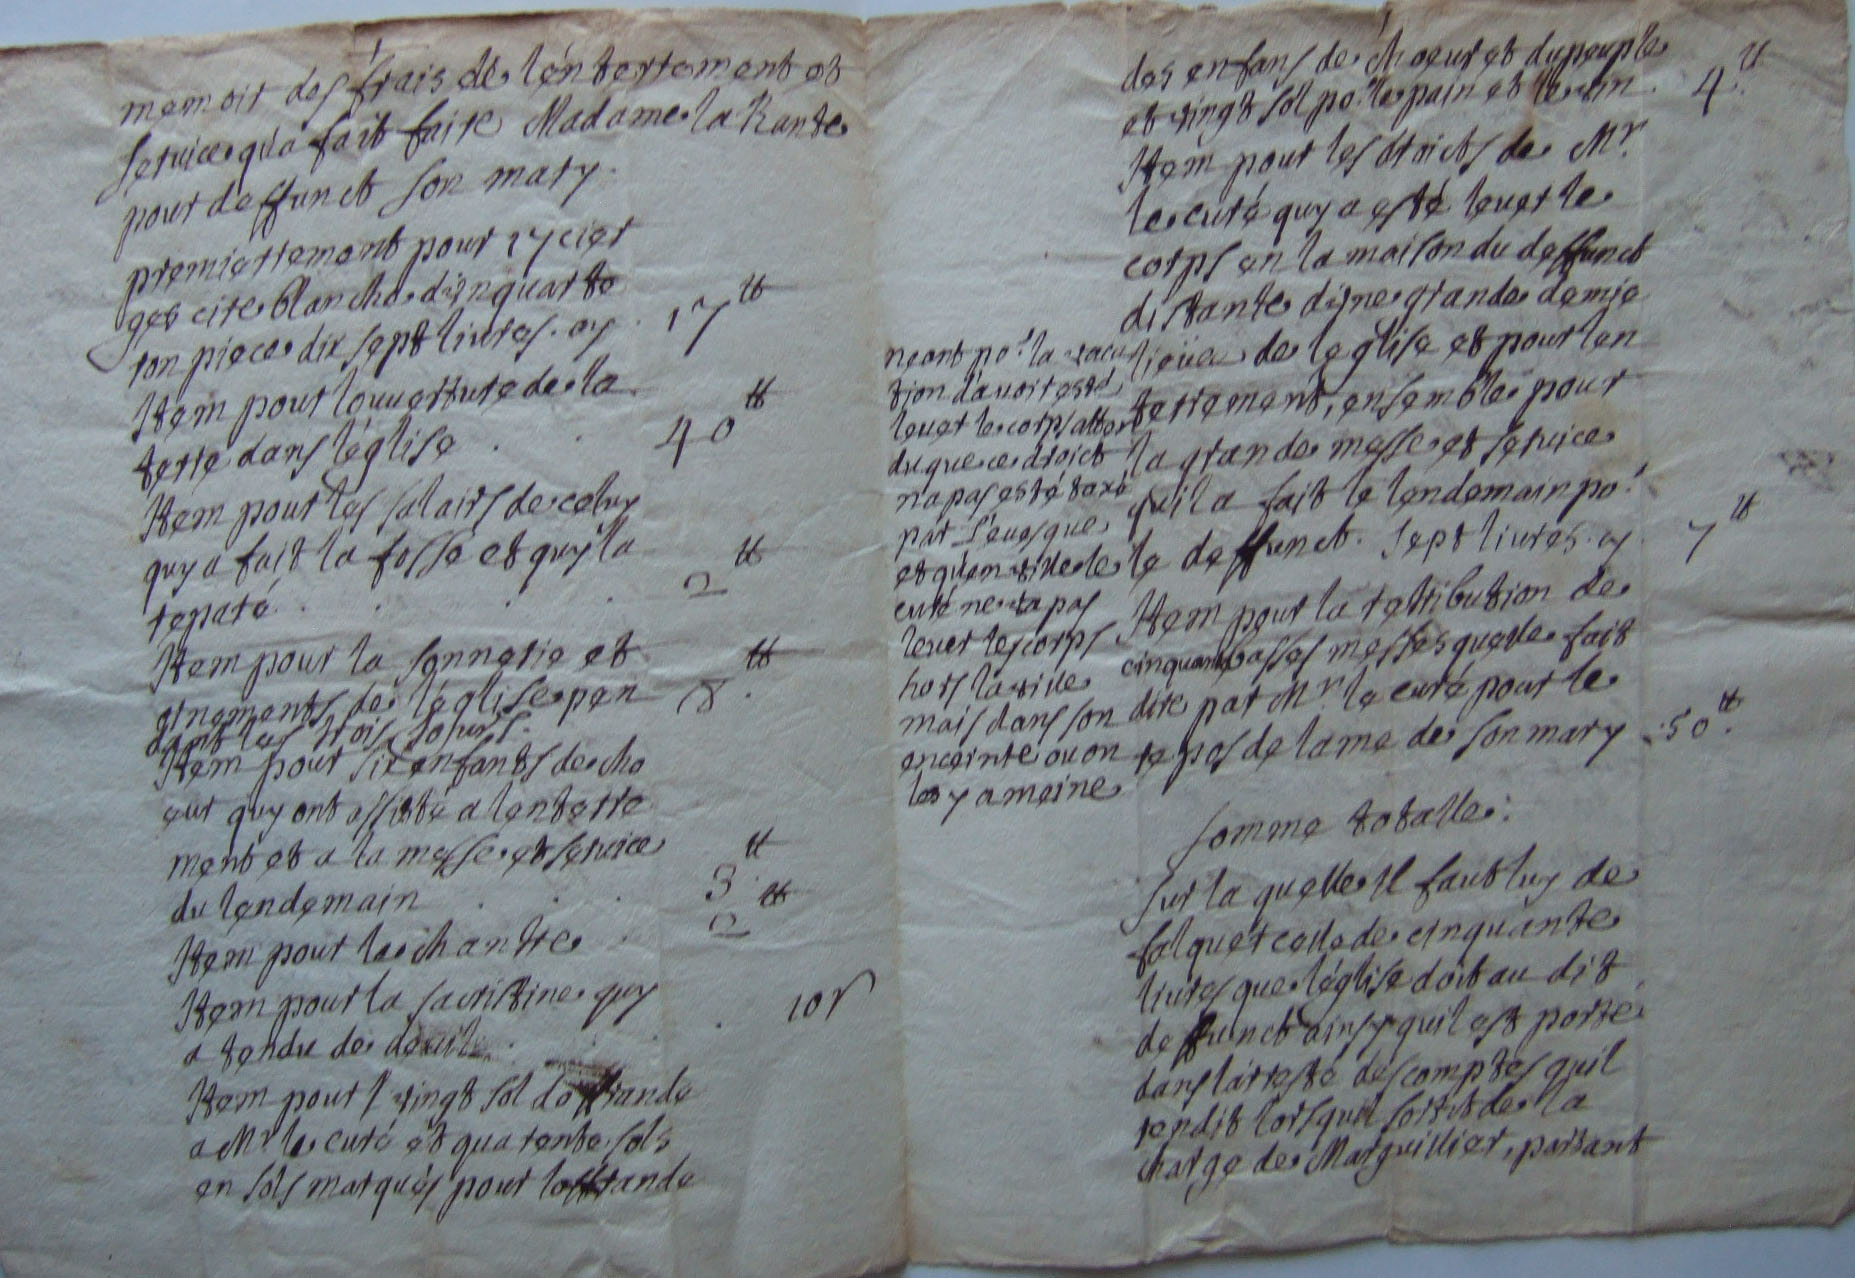 memoir des frais de lenterrement et
service qu'a fait faire Madame la Rante
pour deffunct son mary.
premierrement pour cier
ges cire blanche d'un quarte
ron piece dix sept livres. cy . 17 ₶
Item pour louverture de la
terre dans l'église . . 40 ₶
Item pour les salairs de celuy
quy a fait la fosse et quy la
reparé . . . . 2 ₶
Item pour la sonnerie et
ornements de l'église pen
dant les trois jours. 8 ₶
Item pour six enfants de cho
eur quy ont assisté a lenterre
ment et a la messe et service
du lendemain . . . 3 ₶
Item pour le chantre . 2 ₶
Item pour la sacristine quy
a tendu de deuil . . . 10 s
Item pour vingt sol doffrande
a Mr le curé et quarente sols
en sols marqués pour loffrande
des enfans de choeur et du peuple
et vingt sol po.r le pain et le vin . 4 ₶
Item pour les droicts de Mr
le curé quy a esté lever le
corps en la maison du deffunct
distante d'une grande demie
lieüe de leglise et pour len
terrement, ensemble pour
la grande messe et service
quil a fait le lendemain po.r
le deffunct. sept livres. cy . 7 ₶
Item pour la rettribution de
cinquante basses messes quelle fait
dire par Mr le curé pour le
repos de lame de son mary . 50 ₶
neant po.r la vaca
tion d'avoir esté
lever le corps atten
du que ce droict
n'a pas esté taxé
par L'evesque
et qu'en ville le
curé ne va pas
lever les corps
hors la ville
mais dans son
enceinte ou on
les y ameine
somme totalle:
sur la quelle Il faut luy de
falquer celle de cinquante
livres que l'église doit au dit
deffunct ainsy quil est porté
dans l'arresté des comptes quil
rendit lorsquil sortit de la
charge de Marguillier, partant